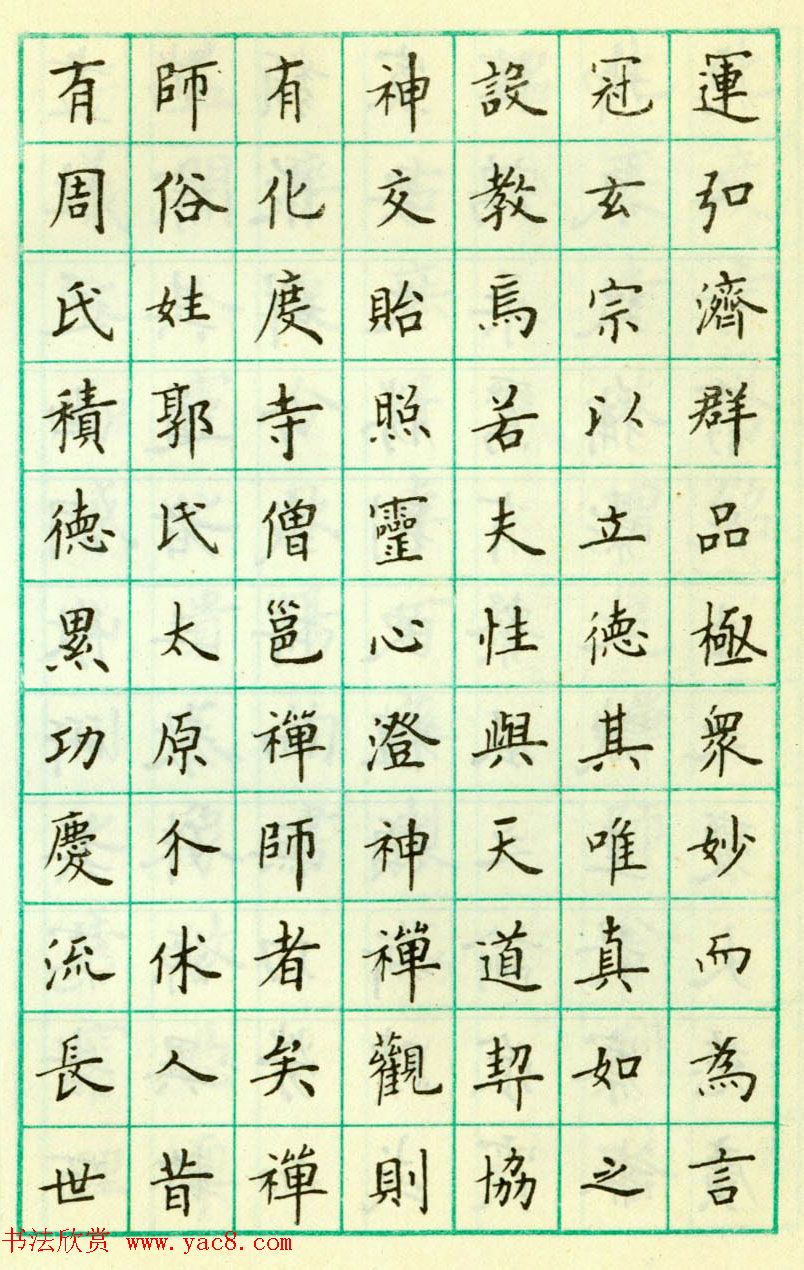 運弘濟群品極衆妙而為言
冠玄宗以立德其唯真如之
設教焉若夫性與天道契協
神交貽照靈心澄神禪觀則
有化度寺僧邕禪師者矣禪
師俗姓郭氏太原介休人昔
有周氏積德累功慶流長世
书法欣赏 www.yac8.com